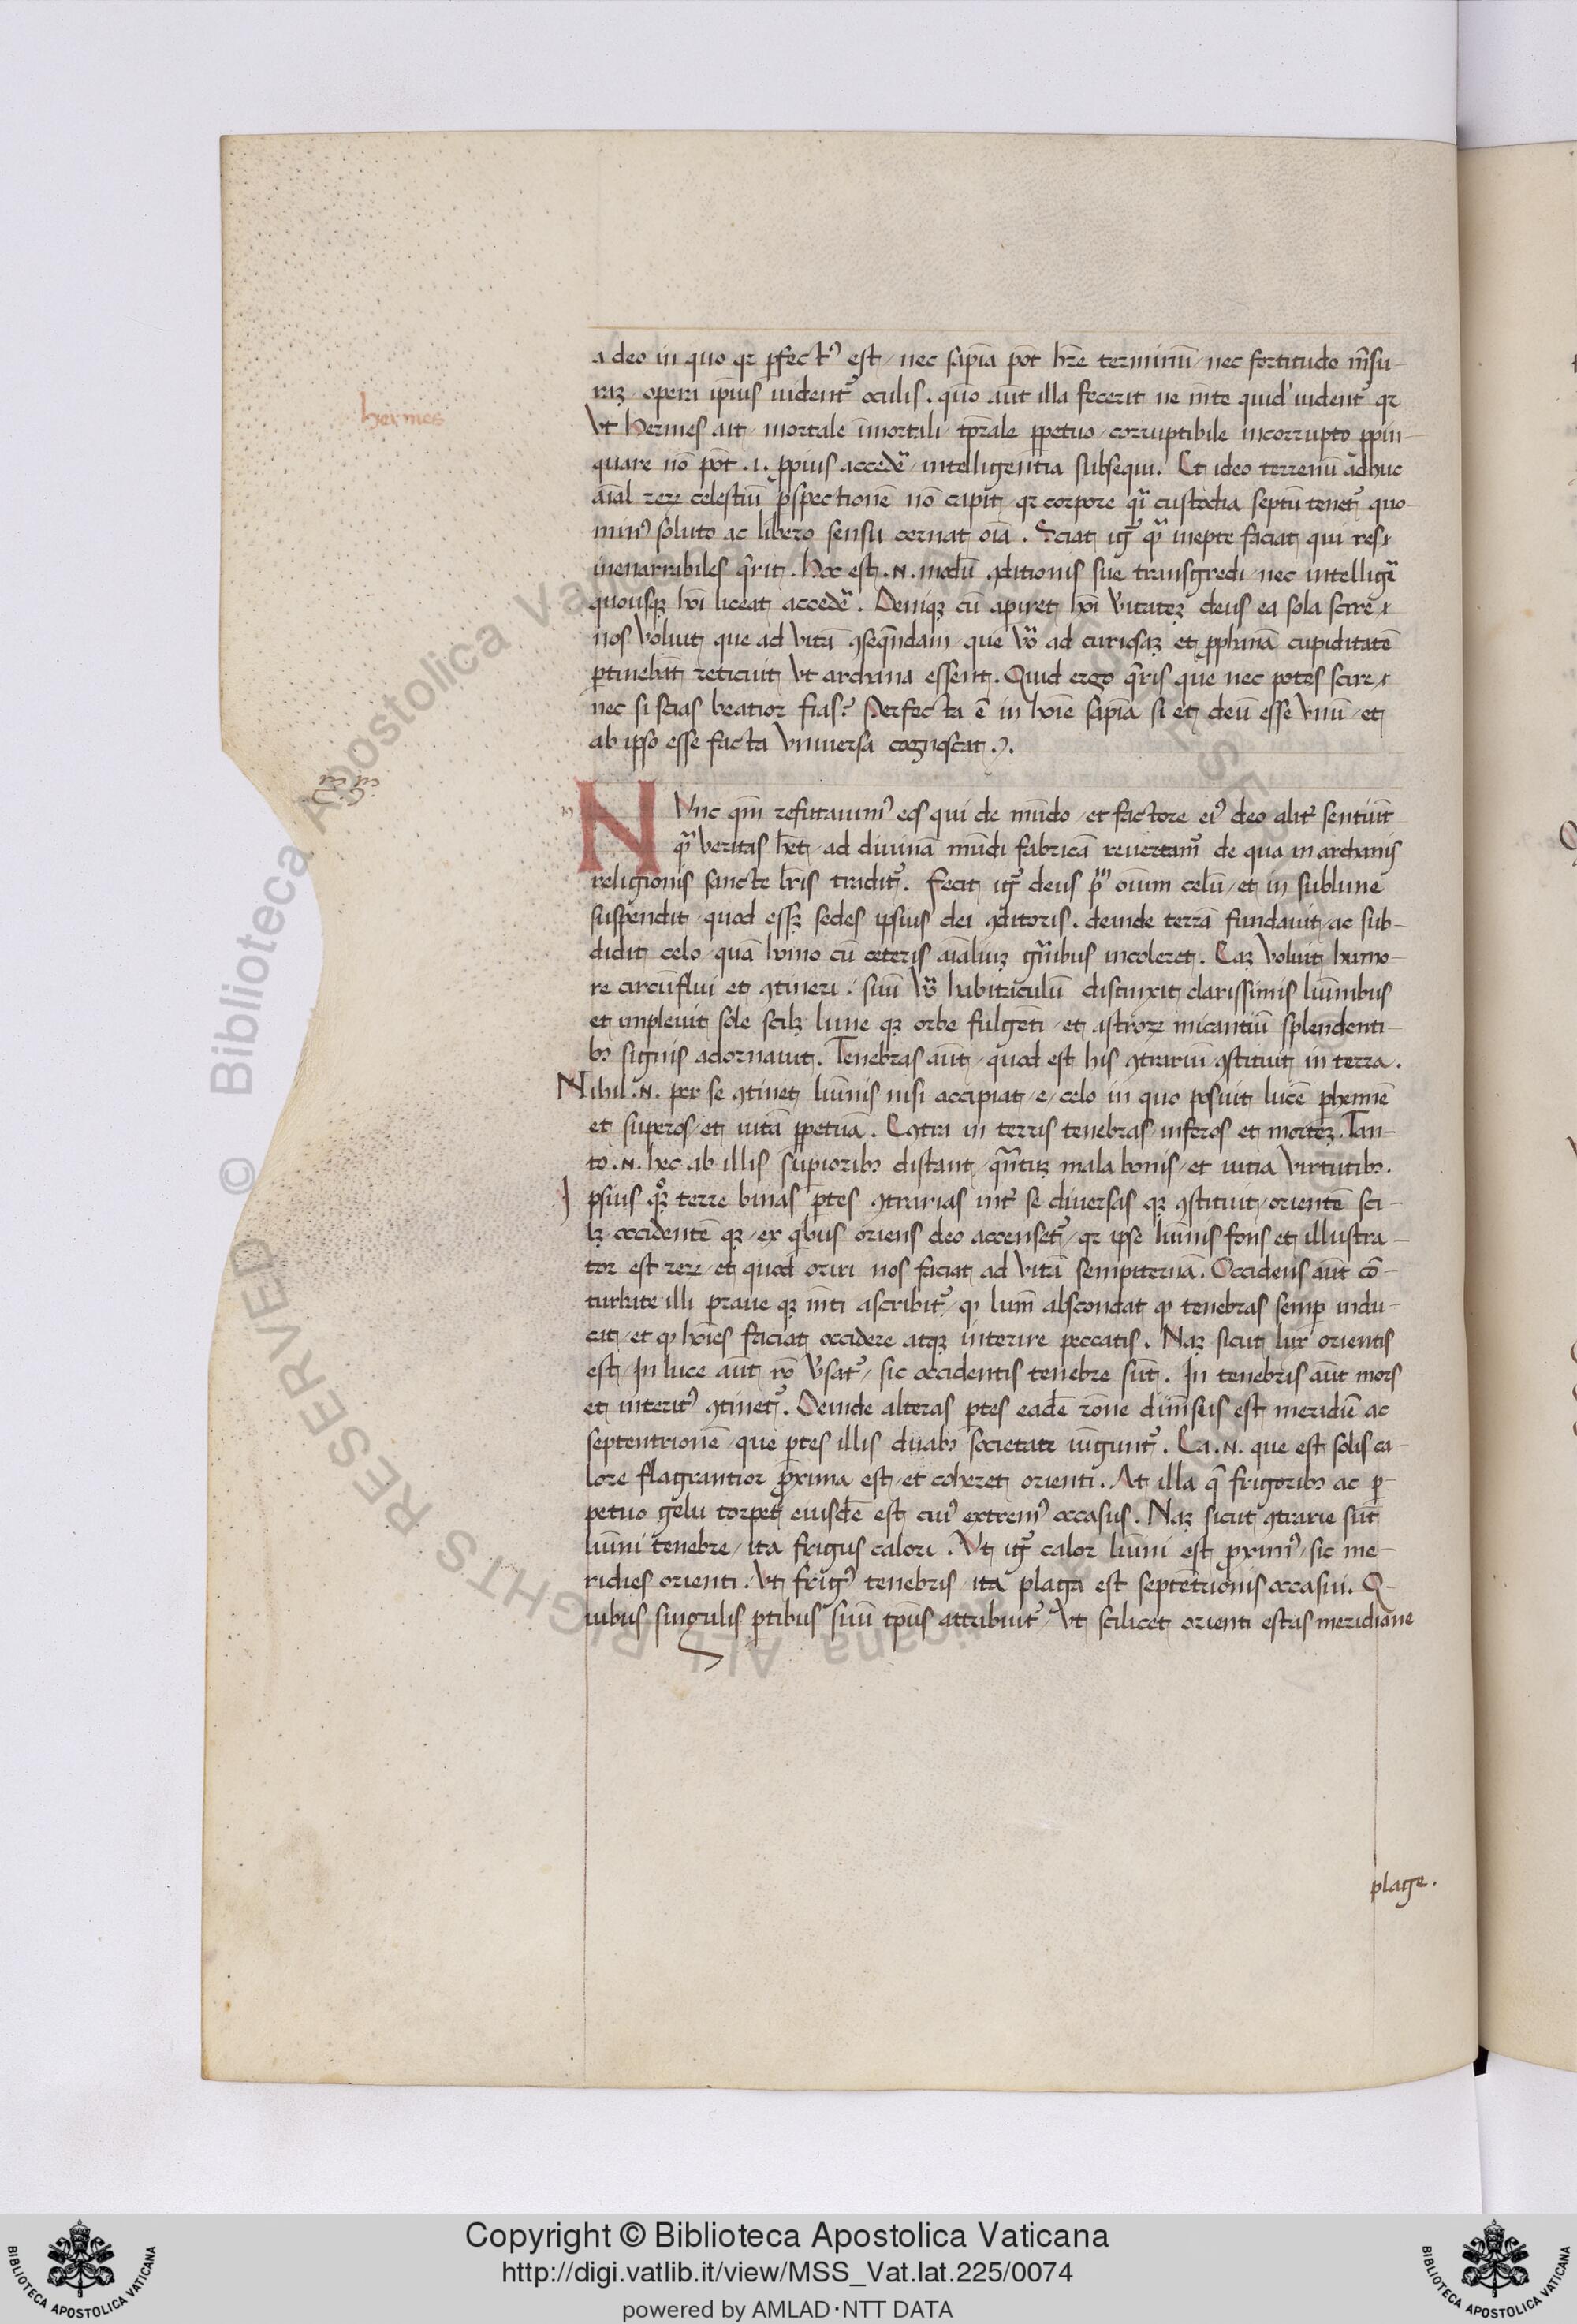 a deo in quo qr pfect᾽ est / nec sapīa pōt hr̄e terminū / nec fortitudo mēsu-
raʒ . operū ipīus uident᾽ oculis . quō aūt illa fecerit ne mēte quid᾽ uident᾽ qr
Vt hermes ait / mortale īmortali / tpr̄ale ꝑpetuo / corruptibile incorrupto ꝓpin-
quare nō pōt .i. ꝓpius accede᾽ / intelligentia subsequi . Et ideo terrenū adhuc
aīal reꝝ celestiū pspectionē nō capit / qr corpore q̄i custodia septū tenet᾽ quo
min᾽ soluto ac libero sensu cernat oīa . Sciat ig᾽ q̄ inepte faciat qui res
inenarrabiles q̄rit . Hoc est .N. modū ꝯditionis sue transgredi / nec intellige᾽
quousqʒ hoī liceat accede᾽ . Deniqʒ cū apiret hoī v̄itateʒ deus ea sola scire
nos voluit que ad vitā ꝯseq̄ndam / que v̄o ad curiosaʒ et ꝓphanā cupiditatē
ptinebāt reticuit vt archana essent . Quid ergo q̄ris que nec potes scire
nec si scias beatior fias? Perfecta ē in hoīe sapīa si et deū esse vnū / et
ab ipso esse facta vniuersa cognoscat .
hermes
NVnc qm̄ refutauim᾽ eos qui de mūdo / et factore ei᾽ deo alit᾽ sentiūt
q̄ veritas h̄et / ad diuinā mūdi fabricā reuertam᾽ de qua in archanis
religionis sancte l̄ris tradit᾽ . Fecit ig᾽ deus p̄ᵐ oīum celū / et in sublime
suspendit / quod esset sedes ipsius dei ꝯditoris . deinde terrā fundauit / ac sub-
didit celo / quā homo cū ceteris aīaliuʒ gn̄ibus incoleret . Eaʒ voluit humo-
re circūflui et ꝯtineri . suū v̄o habitaculū distinxit clarissimis lumībus
et impleuit / sole scilʒ lune qʒ orbe fulgenti / et astroꝝ micantiū splendenti-
bꝫ signis adornauit . Tenebras aūt / quod est his ꝯtrariū ꝯstituit in terra .
Nihil .N. per se ꝯtinet lumīs nisi accipiat / e / celo in quo posuit lucē phennē
et superos / et uitā ꝑpetuā . Eꝯtra in terris tenebras / inferos et morteʒ . Tan-
to .N. hec ab illis supioribꝫ distant / q̄ntuʒ mala bonis / et uitia virtutibꝫ .
Ipsius qꝫ terre binas ꝑtes ꝯtrarias int᾽ se diuersas qʒ ꝯstituit / orientē sci-
lʒ occidentē qʒ / ex q̄bus oriens deo accenset᾽ / qr ipse lumīs fons et illustra-
tor est reꝝ / et quod oriri nos faciat ad vitā sempiternā . Occidens aūt cō-
turbate illi praue qʒ mēti ascribit᾽ / ꝙ lumē abscondat ꝙ tenebras semꝑ indu-
cat / et ꝙ hoīes faciat occidere atqʒ interire peccatis . Naʒ sicut lux orientis
est / In luce aūt rō v̄sat᾽ / sic occidentis tenebre sūt . In tenebris aūt mors
et interit᾽ ꝯtinet᾽ . Deinde alteras ꝑtes eadē rōne dimēsus est meridiē ac
septentrionē / que ꝑtes illis duabꝫ societate iūgunt᾽ . Ea .N. que est solis ca-
lore flagrantior proxima est / et coheret orienti . At illa q̄ frigoribꝫ ac ꝑ-
petuo gelu torpet eiusdē est cui᾽ extrem᾽ occasus . Naʒ sicut ꝯtrarie sūt
lumīi tenebre / ita frigus calori . Vt ig᾽ calor lumīi est proxim᾽ / sic me-
ridies orienti . Vt frig᾽ tenebris / ita plaga est septētrionis occasui . Q-
uibus singulis ꝑtibus suū tp̄us attribuit / Vt scilicet orienti estas meridiane
plage .
© Biblioteca Apostolica Vaticana ALL RIGHTS RESERVED
Copyright © Biblioteca Apostolica Vaticana
http://digi.vatlib.it/view/MSS_Vat.lat.225/0074
powered by AMLAD·NTT DATA
BIBLIOTECA APOSTOLICA VATICANA
BIBLIOTECA APOSTOLICA VATICANA